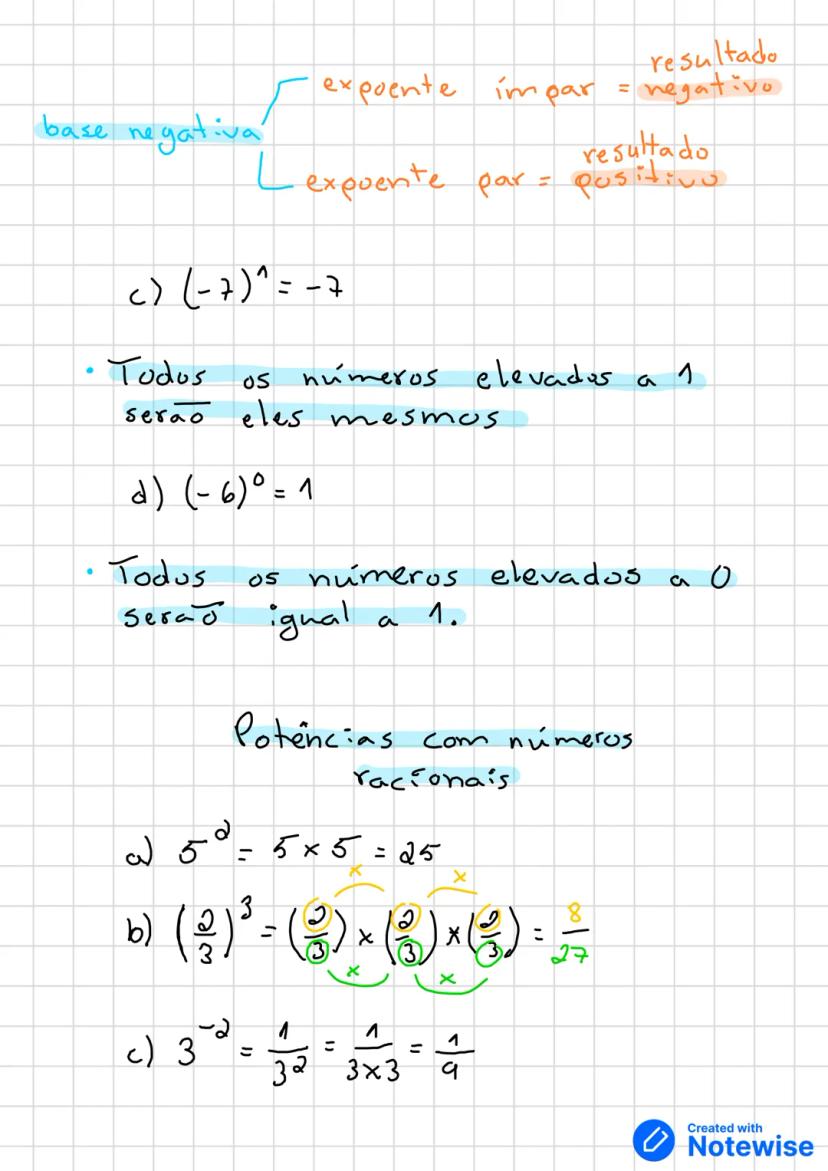 resultado
expoente ímpar = negativo
base negativa
resultado
expoente par = positivo
c) (-7)¹ = -7
• Todos os números elevados a 1
serão eles mesmos
d) (-6)⁰ = 1
• Todos os números elevados a 0
serão igual a 1.
Potências com números
racionais
a) 5² = 5 × 5 = 25
× ×
b) (2/3)³ = (2/3) × (2/3) × (2/3) = 8/27
× ×
c) 3⁻² = 1/3² = 1/3×3 = 1/9
Created with
Notewise